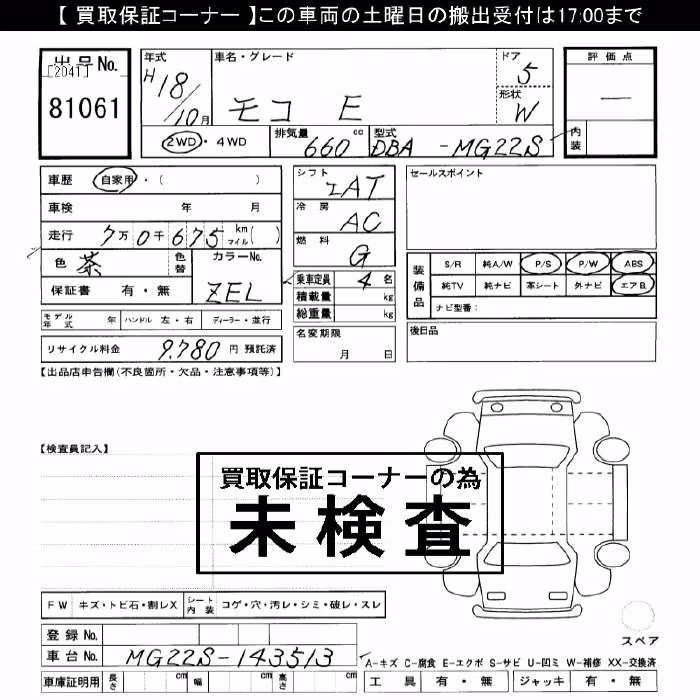 【 買取保証コーナー 】この車両の土曜日の搬出受付は17:00まで
出品No.
[2041]
81061
年式 車名・グレード ドア
H18/10月 モコ E 5
形状
W
2WD・4WD 排気量 660 cc 型式 DBA -MG22S
評価点
—
内装
車歴 自家用・( )
車検 年 月
走行 7万0千675 km マイル( )
色 茶 色替 カラーNo.
ZEL
保証書 有・無
シフト IAT
冷房 AC
燃料 G
乗車定員 4 名
積載量 kg
総重量 kg
セールスポイント
装備品 S/R 純A/W P/S P/W ABS
純TV 純ナビ 革シート 外ナビ エアB
ナビ型番:
モデル年式 年 ハンドル 左・右 ディーラー・並行
名変期限
月 日
後日品
リサイクル料金 9.780 円 預託済
【出品店申告欄(不良箇所・欠品・注意事項等)】
【検査員記入】
買取保証コーナーの為
未検査
FW キズ・トビ石・割レX シート内装 コゲ・穴・汚レ・シミ・破レ・スレ
スペア
登録No.
車台No. MG22S-143513
A-キズ C-腐食 E-エクボ S-サビ U-凹ミ W-補修 XX-交換済
車庫証明用 長さ cm 幅 cm 高さ cm 工具 有・無 ジャッキ 有・無